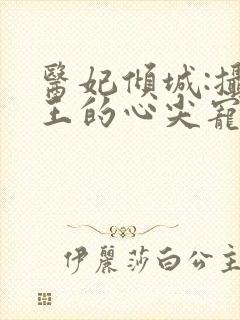 醫妃傾城:攝
王的心尖寵
伊麗莎白公主